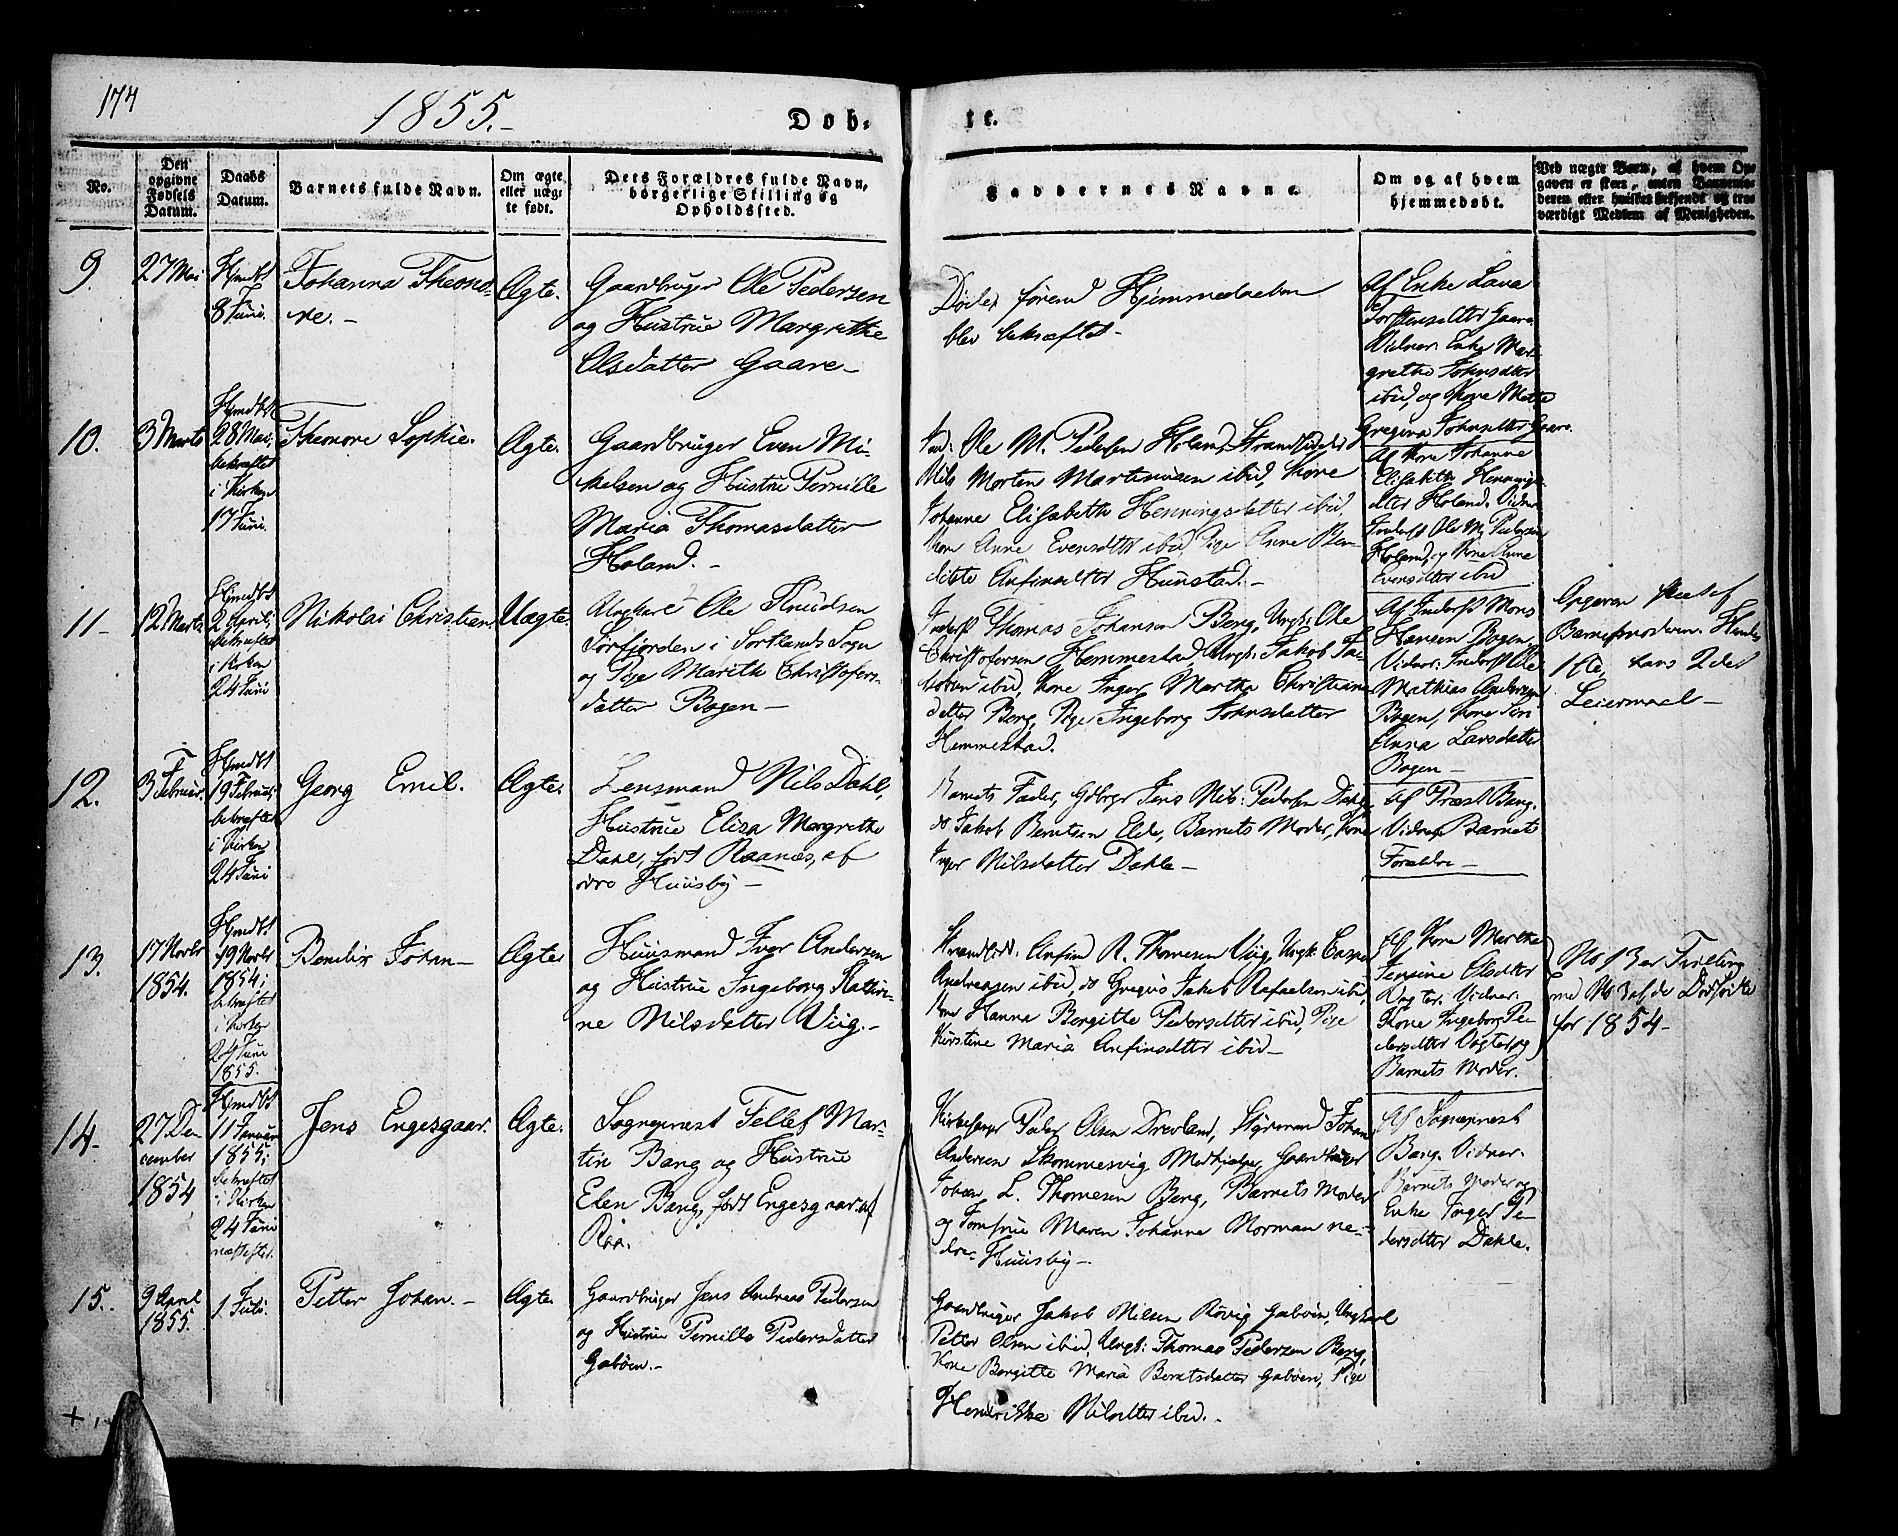 174
1855.-
Døb-
te.
No.
Den
opgivne
Fødsels
Datum.
Daabs
Datum.
Barnets fulde Navn.
Om ægte
eller uæg-
te født.
Dets Forældres fulde Navn,
borgerlige Stilling og
Opholdssted.
Faddernes Navne.
Om og af hvem
hjemmedøbt.
Ved uægte Børn, af hvem Op-
gaven er skeet, enten Barnemo-
deren eller hvilket bekjendt og tro-
værdigt Medlem af Menigheden.
9.
27 Mai
Hjmdbt
8 Juni.
Johanna Theono-
re.-
Ægte.
Gaardbruger Ole Pedersen
og Hustrue Margrethe
Olsdatter Gaare-
Døde, førend Hjemmedaaben
blev bekræftet-
Af Enke Lava
Torstensdtter Gaare
Vidner: Enke Mar-
grethe Johnsdtter
ibid, og Kone Mette
Gregina Johnsdtter Gaare.
10.
3 Marts
Hjmdbt
28 Mai,
bekræftet
i Kirken
17 Juni.
Thenore Sophie.
Ægte.
Gaardbruger Even Mi-
kelsen og Hustrue Pernille
Maria Thomasdatter
Holand.-
Ole M. Pedersen Holand, Strandsidder
Nils Morten Martinusen ibid, Kone
Johanne Elisabeth Henningsdatter ibid,
Kone Anne Evensdtter ibid, Pige Anne Ben-
ditte Anfinsdtter Hunstad.-
Af Kone Johanne
Elisabeth Hennings-
dtter Holand. Vidner
Ole M. Pedersen
Holand, og Kone Anne
Evensdtter ibid
11-
12 Marts
Hjmdbt
2 April,
bekræftet
i Kirken
24 Juni
Nikolai Christian
Uægte.
Ungkarl Ole Knudsen
Sørfjorden i Sortlands Sogn
og Pige Marith Christofers-
datter Bogen-
Inderst Thomas Johansen Berg, Ungk: Ole
Christofersen Hemmestad, Ungk: Jakob Ja-
kobsen ibid, Kone Inger Martha Christians-
datter Berg, Pige Ingeborg Johnsdatter
Hemmestad.
Af Inderst Mons
Hansen Bogen
Vidner: Inderst Ole
Mathias Andersen
Bogen, Kone
Anna Larsdatter
Bogen-
Opgaven skeet af
Barnefmoderen. Hendes
1ste, hans 2det
Leiermaal-
12.
3 Februar.
Hjmdbt
19 Februar,
bekræftet
i Kirken
24 Juni
Georg Emil.
Ægte.
Lensmand Nils Dahl,
Hustrue Eliza Margrethe
Dahl, født Raanæs, af
øvre Huusby-
Barnets Fader, Gdbrgr Jens Nils: Pedersen Dahle
do Jakob Berntsen Elde, Barnets Moder, Kone
Inger Nilsdatter Dahle-
Af Præst Bang.
Vidner Barnets
Forældre-
13.
17 Novbr
1854.
Hjmdbt
19 Novbr
1854;
bekræftet
i Kirken
24 Juni
1855.
Bendix Johan-
Ægte
Huusmand Iver Andersen
og Hustrue Ingeborg Kathri-
ne Nilsdatter Viig.-
Anfind R. Thomesen Viig, Ungk: Casper
Andreasen ibid, do Gregus Jakob Rafaelsen ibid,
Kone Hanna Bergitte Pedersdtter ibid, Pige
Kirstine Maria Anfinsdtter ibid-
Af Kone Martha
Jensine Olsdtter
Vagter. Vidner:
Kone Ingeborg Pe-
dersdtter Vagter og
Barnets Moder.
No 13 er Tvilling
med No 3 af de Dødfødte
for 1854-
14-
27 De-
cember
1854
Hjmdbt
11 Januar
1855;
bekræftet
i Kirken
24 Juni
næstefter.
Jens Engesgaar.
Ægte.
Sognepræst Tellef Mar-
tin Bang og Hustrue
Elen Bang, født Engesgaar af
Røa.
Kirkesanger Peder Olsen Drevland, Styrmand Johan
Andersen Skommesvig Medhjelper, Gaardbruger
Johan L. Thomesen Berg, Barnets Moder
og Jomfrue Maren Johanne Norman ne-
dre Huusby-
Af Sognepræst
Bang. Vidner:
Barnets Moder og
Enke Inger Pe-
dersdtter Dahle.
15.
9 April
1855.
1 Juli.
Petter Johan.-
Ægte.
Gaardbruger Jens Andreas Pedersen
og Hustrue Pernille Pedersdatter
Gabøen.-
Gaardbruger Jakob Nilsen Røvig Gabøen, Ungkarl
Peter Olsen ibid, Ungk: Thomas Pedersen Berg,
Kone Bergitte Maria Berntsdatter Gabøen, Pige
Henrikke Nilsdtter ibid.-